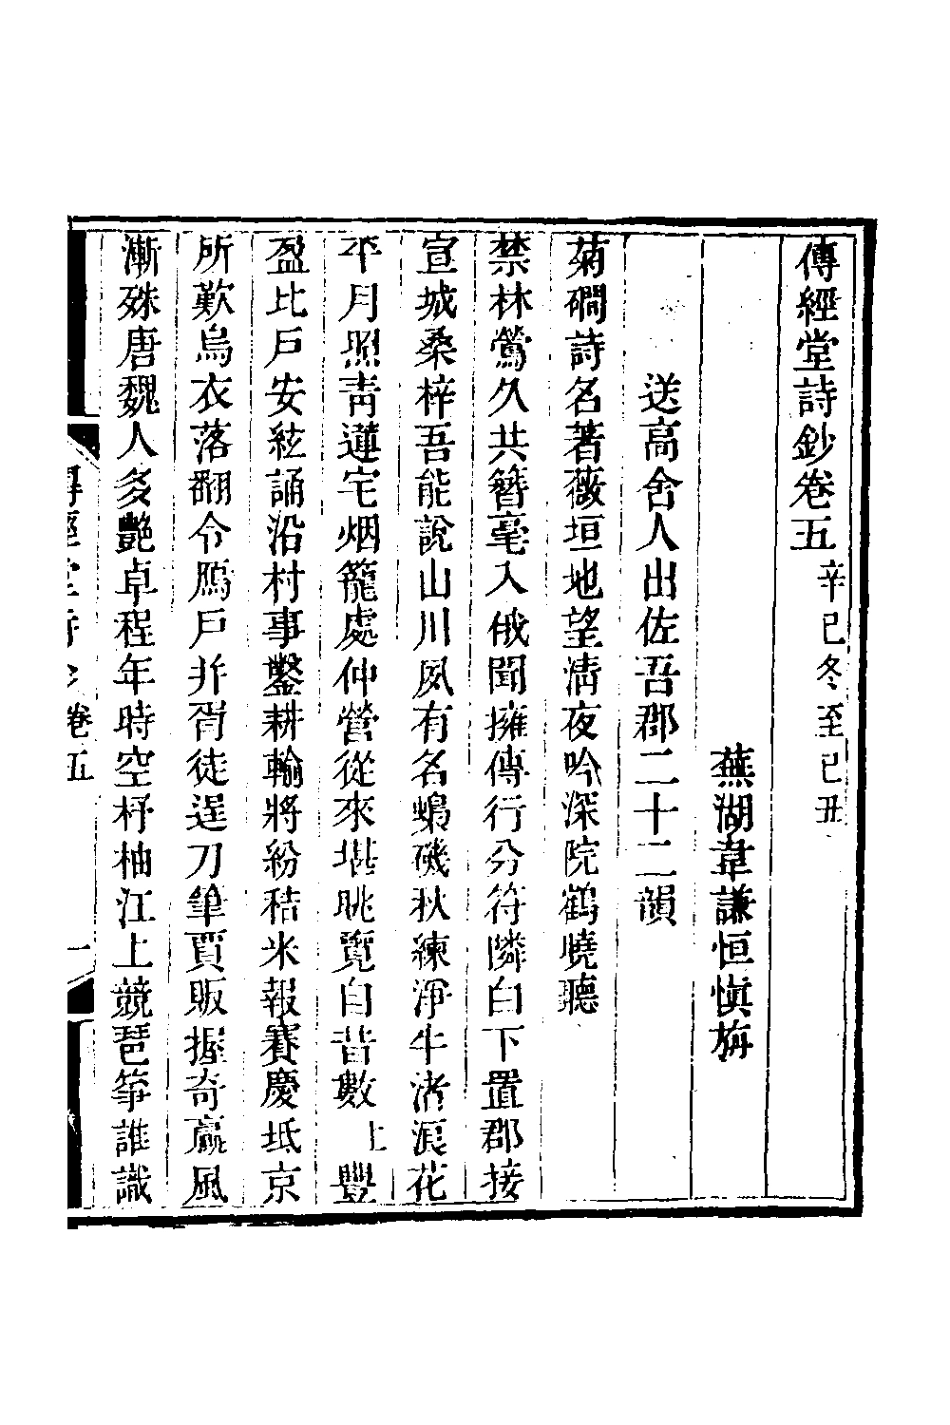 傳經堂詩鈔卷五 辛巳冬至己丑
蕪湖韋謙恒慎旃
送高舍人出佐吾郡二十二韻
菊磵詩名著薇垣地望清夜吟深院鶴曉聽
禁林鶯久共簪毫入俄聞擁傳行分符隣白下置郡接
宣城桑梓吾能說山川夙有名蟂磯秋練淨牛渚浪花
平月照青蓮宅烟籠處仲營從來堪眺覽自昔數 上豐
盈比戶安絃誦沿村事鑿耕輸將紛秸米報賽慶坻京
所歎烏衣落翻令鴈戶幷胥徒逞刀筆賈販握奇贏風
漸殊唐魏人多艷卓程年時空杼柚江上競琵箏誰識
傳經堂詩鈔 卷五 一